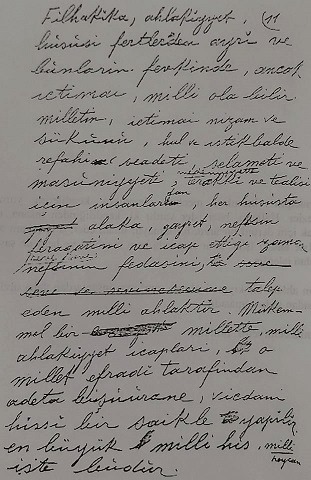 Filhakika, ahlakiyyet, (11
hususî fertlerden ayrı ve
bunların fevkinde, ancak
içtimaî, millî ola bilir.
milletin, içtimaî nizam ve
sükûnu, hal ve istikbalde
refahı, seadeti, selameti ve
masuniyyeti, medeniyette terakki ve tealisi
için insanlardan, her hususta
alaka, gayret, nefsin
feragatini ve icap ettiği zaman
nefsinin fedasini, seve
seve ve sevinerek talep
eden millî ahlaktır. Mükem-
mel bir millette, millî
ahlakiyyet icapları, o
millet efradı tarafından
adeta, vicdanî
hissî bir saikle yapılır.
en büyük millî his, millî heyecan
işte budur.